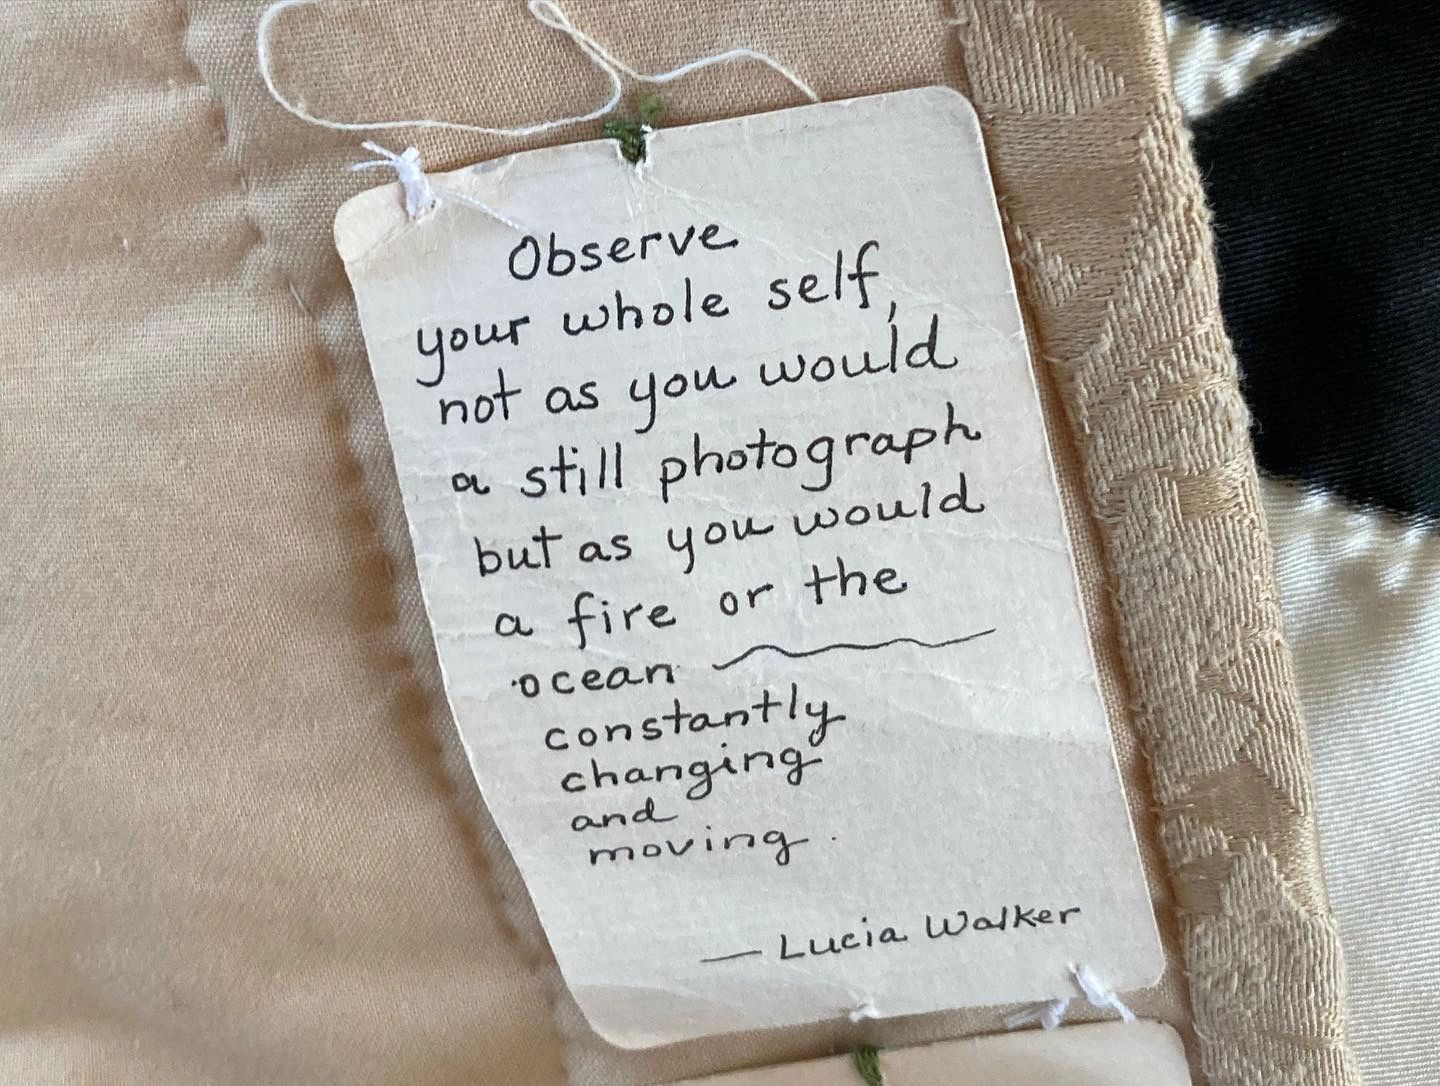 Observe
your whole self,
not as you would
a still photograph
but as you would
a fire or the
ocean
constantly
changing
and
moving.
— Lucia Walker